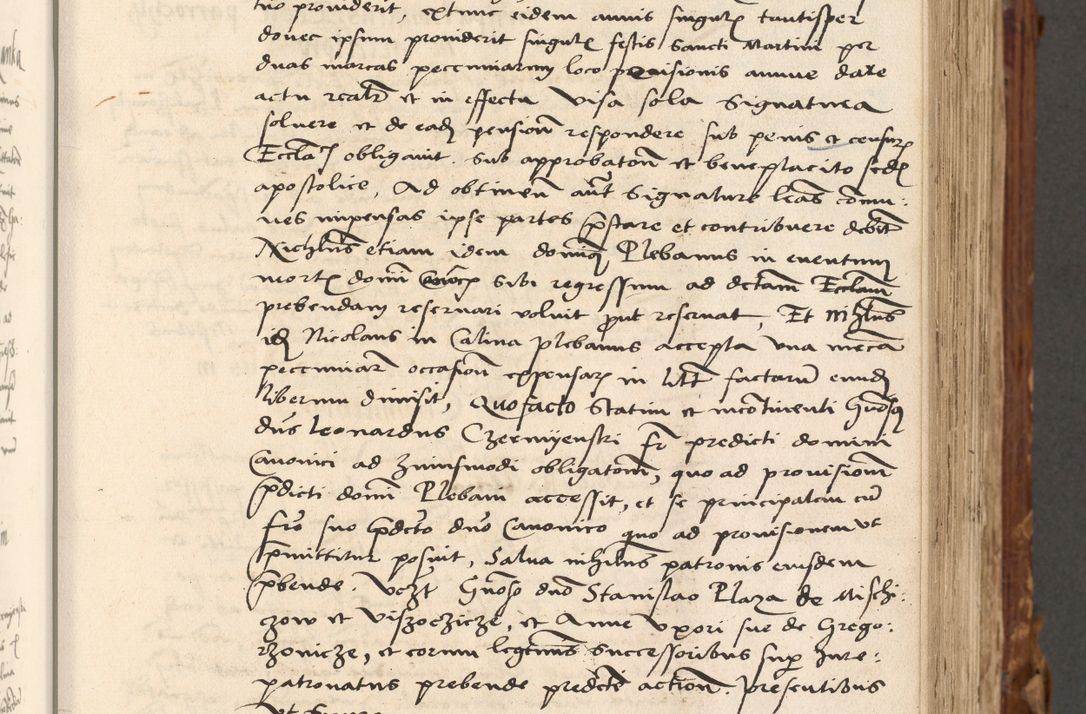 tuo providerit, extunc eidem annis singul tantisper
donec ipsum providerit singul festis Sancti Martini per
duas marcas pecuniarum loco provisionis annue dare
actu realr et in effectu visa sola Signatura
solvere et de ead pension respondere sub penis et censur
Eccla obligavit. Sub approbaton et beneplacito sedis
apostolice, Ad obtinen aut Signature lras comu:
nes impensas ipse partes pstare et contribuere debt
Nichlus etiam idem domin Plebanus in eventum
mort domi sibi regressum ad dctam Ecclam
prebendam reservari voluit put reservat, Et nihlus
id Nicolaus in Calina plebanus accepta una mrca
pecuniar occasion expensar in litt factaru eund
liberum dimisit, Quo facto Statim et incontinenti Gnos
dns Leonardus Czermijenski fr predicti domini
Canonici ad huiusmodi obligatom, quo ad provisionem
pdicti domi Plebani accessit, et se principalem cu
fre suo pdcto dno Canonico quo ad provisionem ut
pmittitur posuit, Salva nihilus patronis eiusdem
pbende Uczt Gnoso dno Stanislao Plaza de Mischi:
czow et Viszoczicze, et Anne Uxori sue de Grego:
rzovicze, et eorum legtimis Successoribus sup Jure:
patronatus prebende predcte action. presentibus